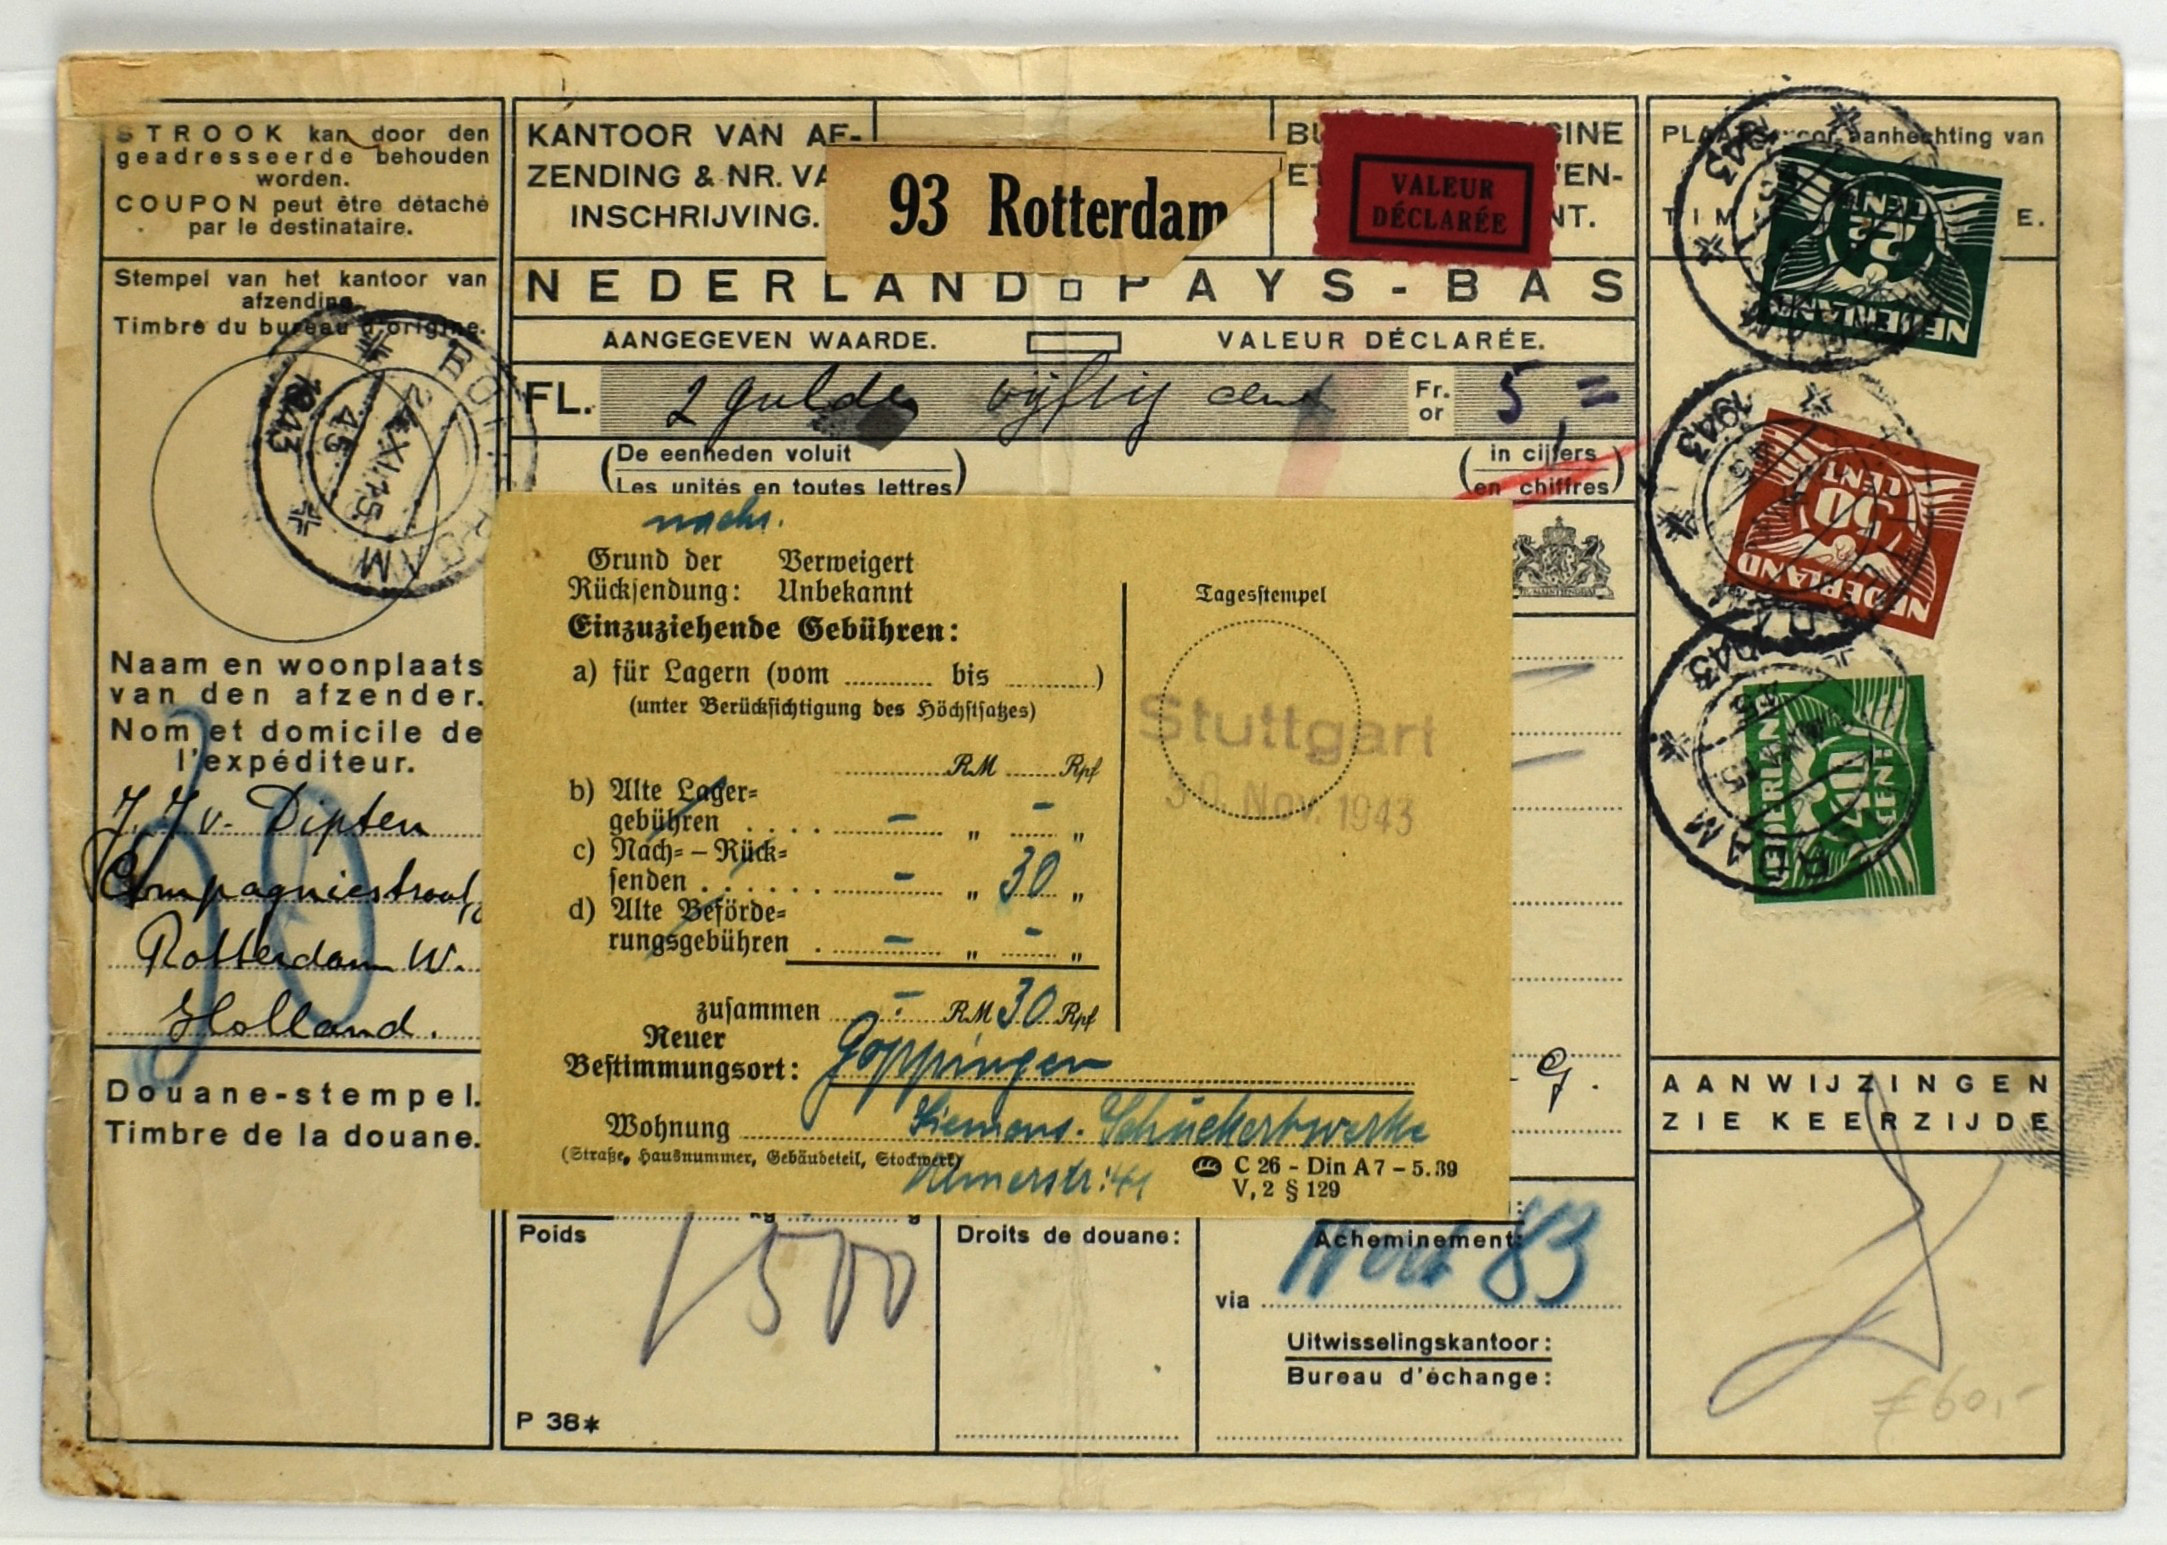 STROOK kan door den
geadresseerde behouden
worden.
COUPON peut être détaché
par le destinataire.
Stempel van het kantoor van
afzending.
Timbre du bureau d'origine.
ROTTERDAM
24.XI.15
45
1943
Naam en woonplaats
van den afzender.
Nom et domicile de
l'expéditeur.
J. J. v. Dipten
Compagniestraat
Rotterdam W.
Holland.
Douane-stempel.
Timbre de la douane.
KANTOOR VAN AF-
ZENDING & NR. VA
INSCHRIJVING.
93 Rotterdam
VALEUR
DÉCLARÉE
NEDERLAND PAYS-BAS
AANGEGEVEN WAARDE. VALEUR DÉCLARÉE.
FL. 2 gulden vijftig cent Fr. or 5,=
(De eenheden voluit) (in cijfers)
(Les unités en toutes lettres) (en chiffres)
nachs.
Grund der Verweigert
Rücksendung: Unbekannt
Einzuziehende Gebühren:
a) für Lagern (vom bis )
(unter Berücksichtigung des Höchstsatzes)
RM Rpf
b) Alte Lager=
gebühren . . . . – „ – „
c) Nach= – Rück=
senden . . . . . . – „ 30 „
d) Alte Beförde=
rungsgebühren . – „ – „
zusammen – RM 30 Rpf
Neuer
Bestimmungsort: Göppingen
Wohnung Siemens-Schuckertwerke
(Straße, Hausnummer, Gebäudeteil, Stockwerk)
Ulmerstr. 41
C 26 - Din A7 - 5.39
V, 2 § 129
Tagesstempel
Stuttgart
30. Nov. 1943
Poids
kg g
1500
P 38*
Droits de douane:
Acheminement:
Wert 83
via
Uitwisselingskantoor:
Bureau d'échange:
PLAATS voor aanhechting van
NEDERLAND
22½
CENT
1943
NEDERLAND
30
CENT
1943
NEDERLAND
12½
CENT
1943
AANWIJZINGEN
ZIE KEERZIJDE
£60,-